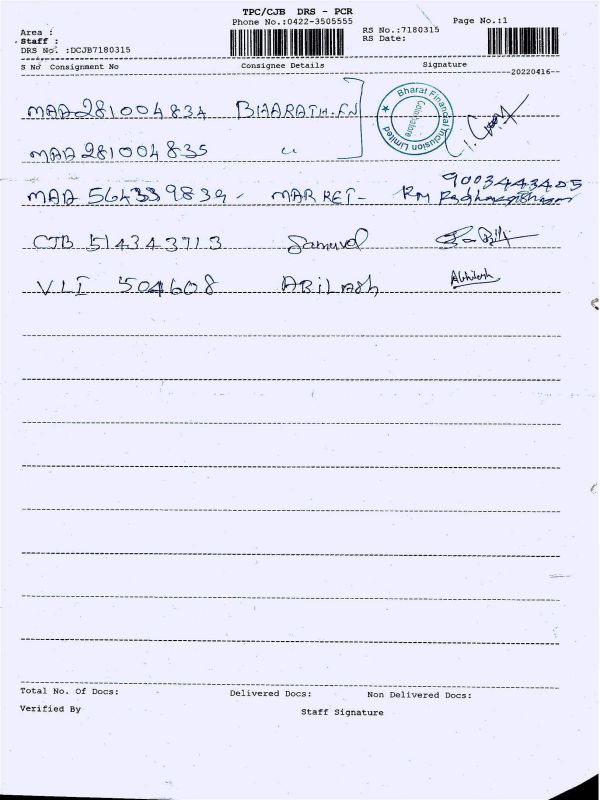 TPC/CJB DRS - PCR
Phone No.:0422-3505555
Page No.:1
Area :
RS No.:7180315
Staff :
RS Date:
DRS No. :DCJB7180315
S No Consignment No Consignee Details Signature
20220416
MAA281004834 BHARATH.FN
Bharat Financial Inclusion Limited
Coimbatore
MAA 281004835 "
9003443405
MAA 564339839 - MARKET - RM
CJB 514343713 Samuvel
VLI 504608 ABiLASh Abhilash
Total No. Of Docs: Delivered Docs: Non Delivered Docs:
Verified By Staff Signature